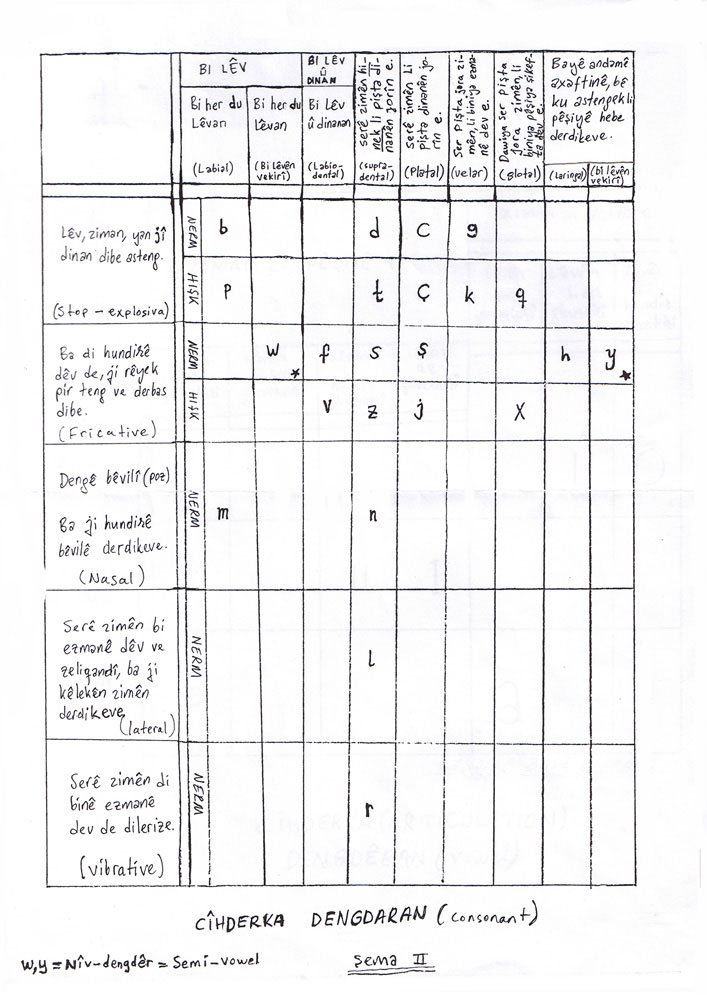 BI LÊV
BI LÊV
û
DINAN
serê zimên hi-
nek li pişta di-
nanên jorîn e.
serê zimên li
pişta dinanên jo-
rîn e.
Ser pişta jora zi-
mên, li biniya ezma-
nê dev e.
Dawiya ser pişta
jora zimên, li
biniya pêşiya şikef-
ta dev e.
Bayê andamê
axaftinê, bê
ku astengek li
pêşiyê hebe
derdikeve.
Bi her du
Lêvan
(Labial)
Bi her du
Lêvan
(Bi lêvên
vekirî)
Bi Lêv
û dinanan
(Labio-
dental)
(supra-
dental)
(Platal)
(velar)
(glotal)
(Laringal)
(bi lêvên
vekirî)
Lêv, ziman, yan jî
dinan dibe asteng.
(Stop – explosiva)
NERM
b d c g
HIŞK
p t ç k q
Ba di hundirê
dêv de, ji rêyek
pir teng ve derbas
dibe.
(Fricative)
NERM
w* f s ş h y*
HIŞK
v z j x
Dengê bêvilî (poz)
Ba ji hundirê
bêvilê derdikeve.
(Nasal)
NERM
m n
Serê zimên bi
ezmanê dêv ve
zeliqandî, ba ji
kêlekên zimên
derdikeve
(lateral)
NERM
l
Serê zimên di
binê ezmanê
dev de dilerize.
(vibrative)
NERM
r
CÎHDERKA DENGDARAN (consonant)
W,y = Nîv-dengdêr = Semi-vowel
Şema II